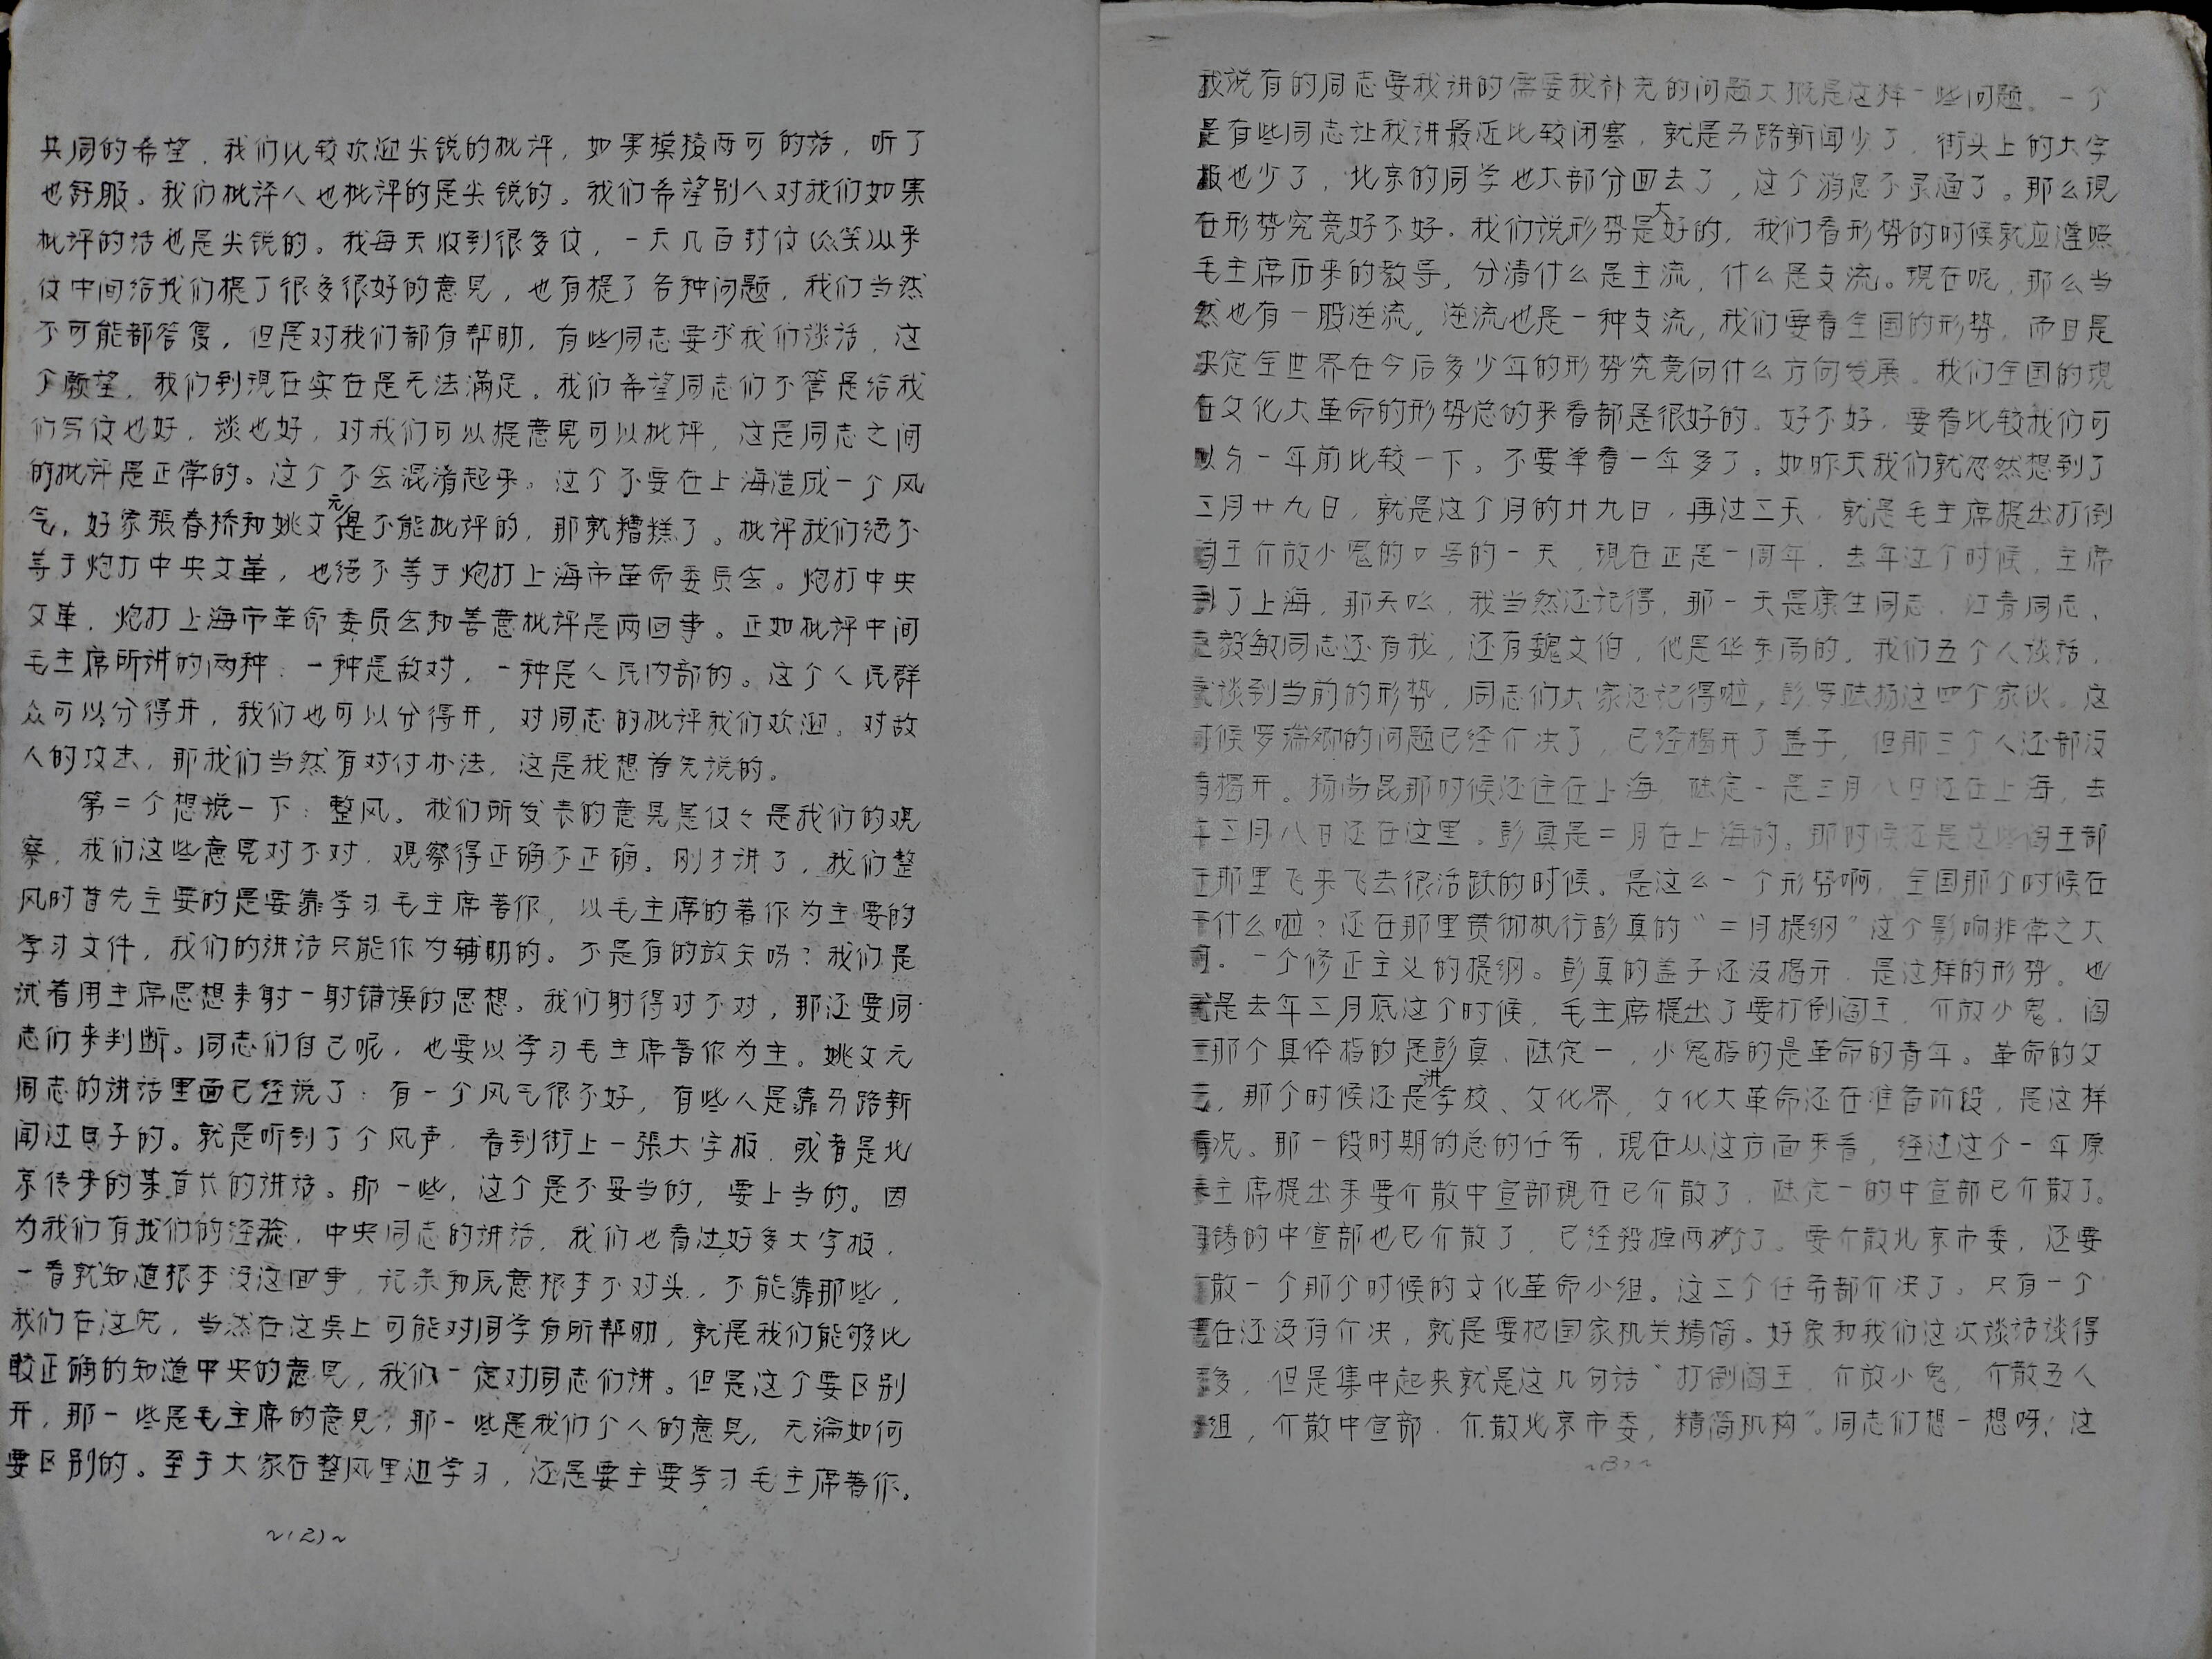 共同的希望，我们比较欢迎尖锐的批评，如果模棱两可的话，听了
也舒服。我们批评人也批评的是尖锐的。我们希望别人对我们如果
批评的话也是尖锐的。我每天收到很多信，一天几百封信(众笑)从来
信中间给我们提了很多很好的意见，也有提了各种问题，我们当然
不可能都答复，但是对我们都有帮助，有些同志要求我们谈话，这
个愿望，我们到现在实在是无法满足。我们希望同志们不管是给我
们写信也好，谈也好，对我们可以提意见可以批评，这是同志之间
的批评是正常的。这个不会混淆起来。这个不要在上海造成一个风
气，好象張春桥和姚文元是不能批评的，那就糟糕了。批评我们绝不
等于炮打中央文革，也绝不等于炮打上海市革命委员会。炮打中央
文革，炮打上海市革命委员会和善意批评是两回事。正如批评中间
毛主席所讲的两种：一种是敌对，一种是人民内部的。这个人民群
众可以分得开，我们也可以分得开，对同志的批评我们欢迎。对敌
人的攻击，那我们当然有对付办法，这是我想首先说的。
第二个想说一下：整风。我们所发表的意见是仅々是我们的观
察，我们这些意见对不对，观察得正确不正确。刚才讲了，我们整
风时首先主要的是要靠学习毛主席著作，以毛主席的著作为主要的
学习文件，我们的讲话只能作为辅助的。不是有的放矢吗？我们是
试着用主席思想来射一射错误的思想。我们射得对不对，那还要同
志们来判断。同志们自己呢，也要以学习毛主席著作为主。姚文元
同志的讲话里面已经说了：有一个风气很不好，有些人是靠马路新
闻过日子的。就是听到了个风声，看到街上一張大字报，或者是北
京传来的某首长的讲话。那一些，这个是不妥当的，要上当的。因
为我们有我们的经验，中央同志的讲话，我们也看过好多大字报，
一看就知道根本没这回事，记录和原意根本不对头，不能靠那些，
我们在这儿，当然在这点上可能对同学有所帮助，就是我们能够比
较正确的知道中央的意见，我们一定对同志们讲。但是这个要区别
开，那一些是毛主席的意见，那一些是我们个人的意见，无論如何
要区别的。至于大家在整风里边学习，还是要主要学习毛主席著作。
~(2)~
我说有的同志要我讲的需要我补充的问题大概是这样一些问题。一个
是有些同志让我讲最近比较闭塞，就是马路新闻少了，街头上的大字
报也少了，北京的同学也大部分回去了，这个消息不灵通了。那么現
在形势究竟好不好。我们说形势是大好的，我们看形势的时候就应遵照
毛主席历来的教导，分清什么是主流，什么是支流。現在呢，那么当
然也有一股逆流，逆流也是一种支流，我们要看全国的形势，而且是
决定全世界在今后多少年的形势究竟向什么方向发展。我们全国的現
在文化大革命的形势总的来看都是很好的。好不好，要看比较我们可
以与一年前比较一下。不要单看一年多了。如昨天我们就忽然想到了
三月廿九日，就是这个月的廿九日，再过三天，就是毛主席提出打倒
阎王介放小鬼的口号的一天，現在正是一周年，去年这个时候，主席
到了上海，那天吆，我当然还记得，那一天是康生同志，江青同志，
毅敏同志还有我，还有魏文伯，他是华东局的，我们五个人谈话，
就谈到当前的形势，同志们大家还记得啦，彭罗陆杨这四个家伙。这
时候罗瑞卿的问题已经介决了，已经揭开了盖子，但那三个人还都没
有揭开。杨尚昆那时候还住在上海，陆定一是三月八日还在上海，去
年三月八日还在这里。彭真是二月在上海的。那时候还是这些阎王都
在那里飞来飞去很活跃的时候。是这么一个形势啊，全国那个时候在
干什么啦？还在那里贯彻执行彭真的“二月提纲”这个影响非常之大
啊。一个修正主义的提纲。彭真的盖子还没揭开，是这样的形势。也
就是去年三月底这个时候，毛主席提出了要打倒阎王，介放小鬼，阎
王那个具体指的是彭真、陆定一，小鬼指的是革命的青年。革命的文
，那个时候还是讲学校、文化界，文化大革命还在准备阶段，是这样
情况。那一段时期的总的任务，現在从这方面来看，经过这个一年原
来主席提出来要介散中宣部現在已介散了，陆定一的中宣部已介散了。
铸的中宣部也已介散了，已经毁掉两个了。要介散北京市委，还要
散一个那个时候的文化革命小组。这三个任务都介决了，只有一个
在还没有介决，就是要把国家机关精简。好象和我们这次谈话谈得
多，但是集中起来就是这几句话“打倒阎王，介放小鬼，介散五人
组，介散中宣部，介散北京市委，精简机构”。同志们想一想呀，这
~(3)~